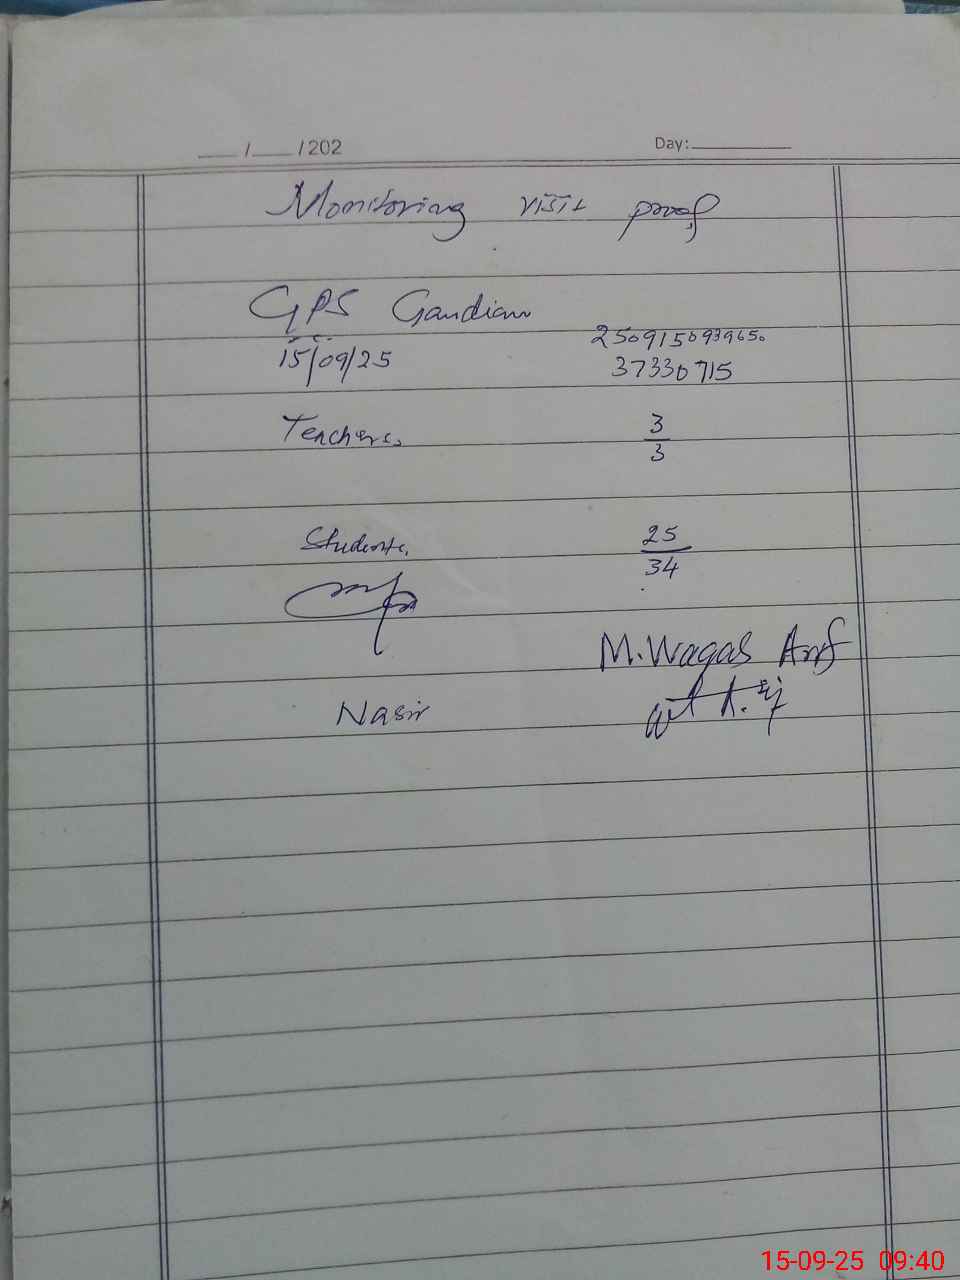 / /202 Day:
Monitoring visit proof
GPS Gandian
15/09/25 250915093965.
37330715
Teachers. 3/3
Students. 25/34
M. Waqas Arif
Nasir
15-09-25 09:40